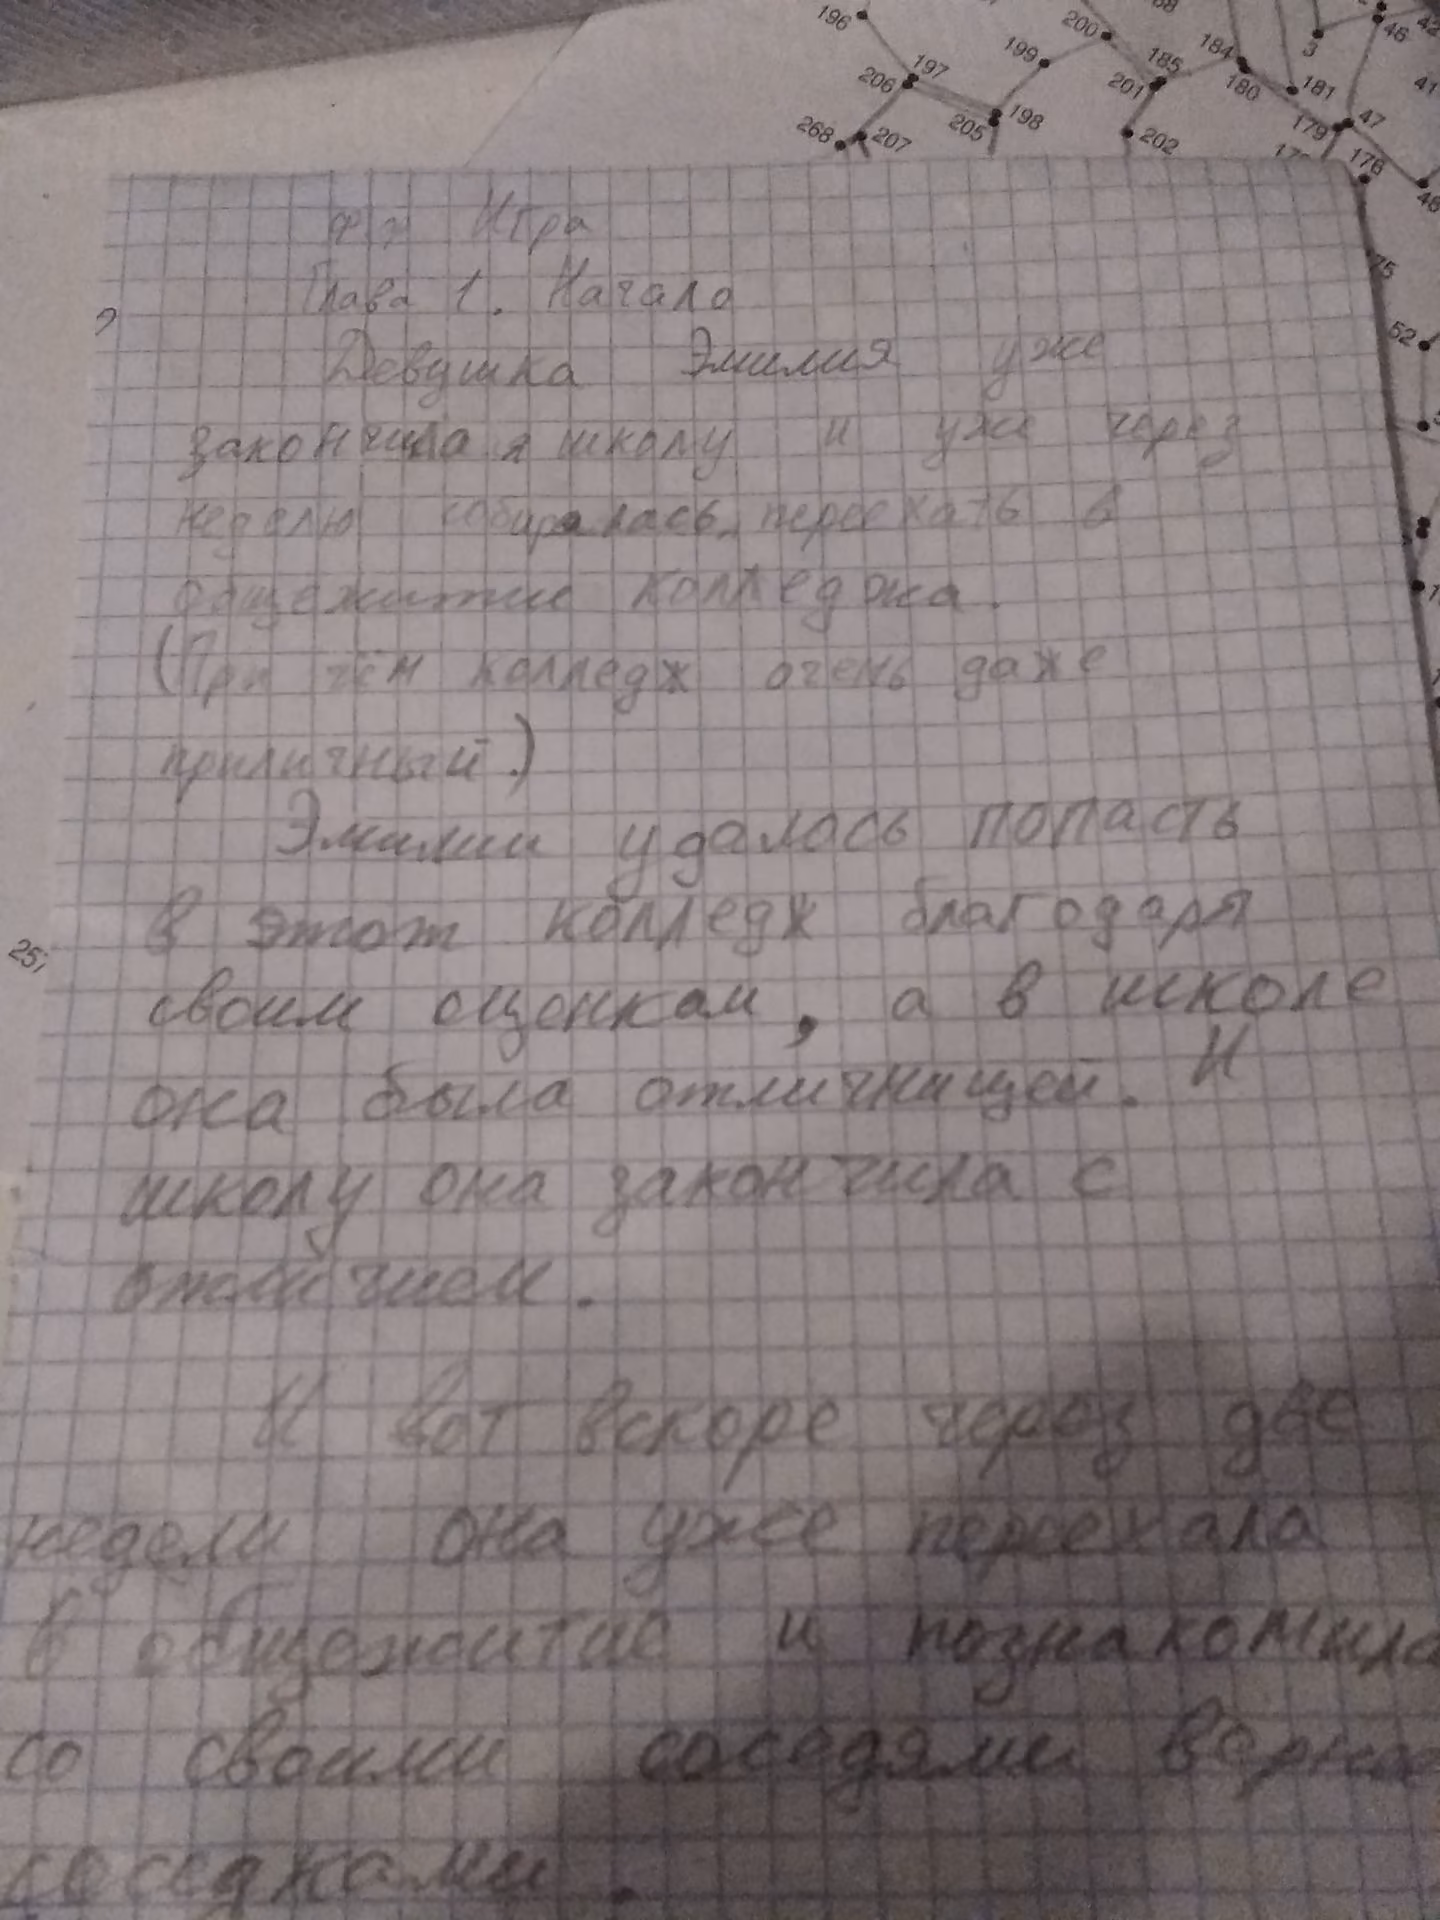 196
200
199
197
206
198
205
268
207
185
201
202
184
180
181
3
46
42
41
47
179
176
46
52
25
фф Игра
Глава 1. Начало
Девушка Эмилия уже
закончила школу и уже через
неделю собиралась переехать в
общежитие колледжа.
(При чём колледж очень даже
приличный.)
Эмилии удалось попасть
в этот колледж благодаря
своим оценкам, а в школе
она была отличницей. И
школу она закончила с
отличием.
И вот вскоре через две
недели она уже переехала
в общежитие и познакомила
со своими соседями верне
соседками.